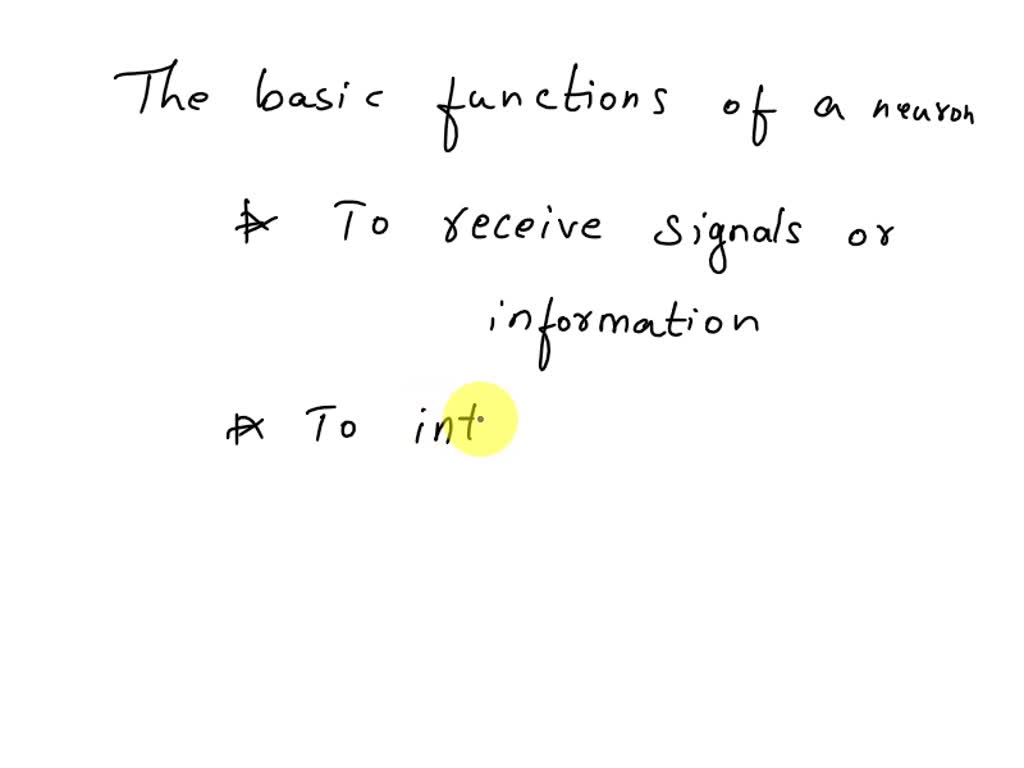 The basic functions of a neuron
* To receive signals or
information
* To int